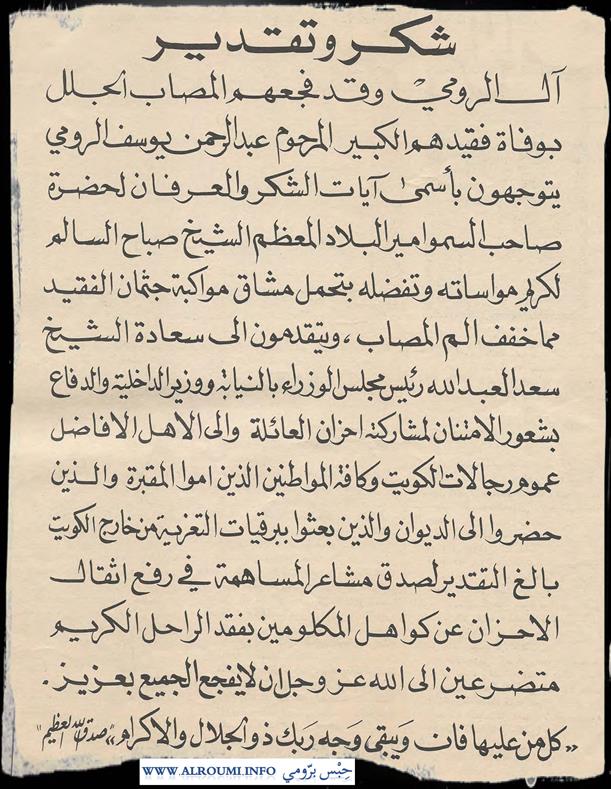 شكر وتقدير
آل الرومي وقد فجعهم المصاب الجلل
بوفاة فقيدهم الكبير المرحوم عبدالرحمن يوسف الرومي
يتوجهون بأسمى آيات الشكر والعرفان لحضرة
صاحب السمو امير البلاد المعظم الشيخ صباح السالم
لكريم مواساته وتفضله بتحمل مشاق مواكبة جثمان الفقيد
مما خفف الم المصاب ، ويتقدمون الى سعادة الشيخ
سعد العبدالله رئيس مجلس الوزراء بالنيابة ووزير الداخلية والدفاع
بشعور الامتنان لمشاركته احزان العائلة والى الاهل الافاضل
عموم رجالات الكويت وكافة المواطنين الذين اموا المقبرة والذين
حضروا الى الديوان والذين بعثوا ببرقيات التعزية من خارج الكويت
بالغ التقدير لصدق مشاعر المساهمة في رفع اثقال
الاحزان عن كواهل المكلومين بفقد الراحل الكريم
متضرعين الى الله عز وجل ان لا يفجع الجميع بعزيز .
«كل من عليها فان وَيَبقى وَجه رَبك ذو الجلال والاكرام» "صدق الله العظيم"
حِبْس برّومي WWW.ALROUMI.INFO